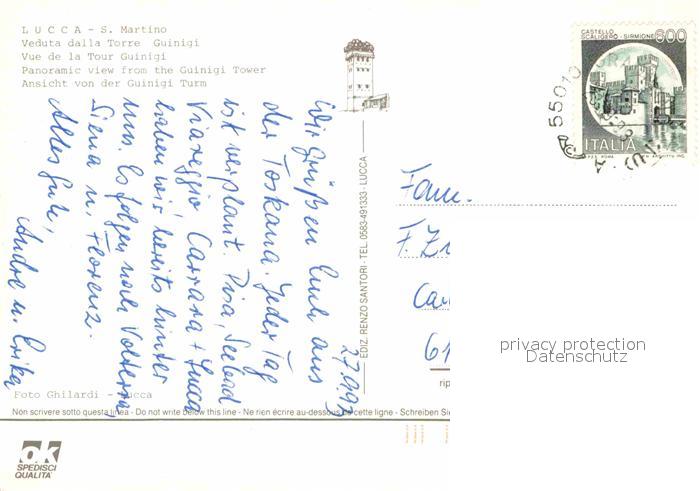 LUCCA - S. Martino
Veduta dalla Torre Guinigi
Vue de la Tour Guinigi
Panoramic view from the Guinigi Tower
Ansicht von der Guinigi Turm
27.9.93
Wir grüßen Euch aus
der Toskana. Jeder Tag
ist verplant. Pisa, Seebad
Viareggio Carrara + Lucca
haben wir bereits hinter
uns. Es folgen noch Volterra,
Siena u. Florenz.
Alles Gute,
Andre u. Erika
Foto Ghilardi - Lucca
EDIZ. RENZO SANTORI - TEL. 0583-491333 - LUCCA
CASTELLO
SCALIGERO - SIRMIONE
600
ITALIA
55010
Fam.
F. Zi
Ca
61
privacy protection
Datenschutz
rip
Non scrivere sotto questa linea - Do not write below this line - Ne rien écrire au-dessous de cette ligne - Schreiben Si
ok
SPEDISCI
QUALITA'